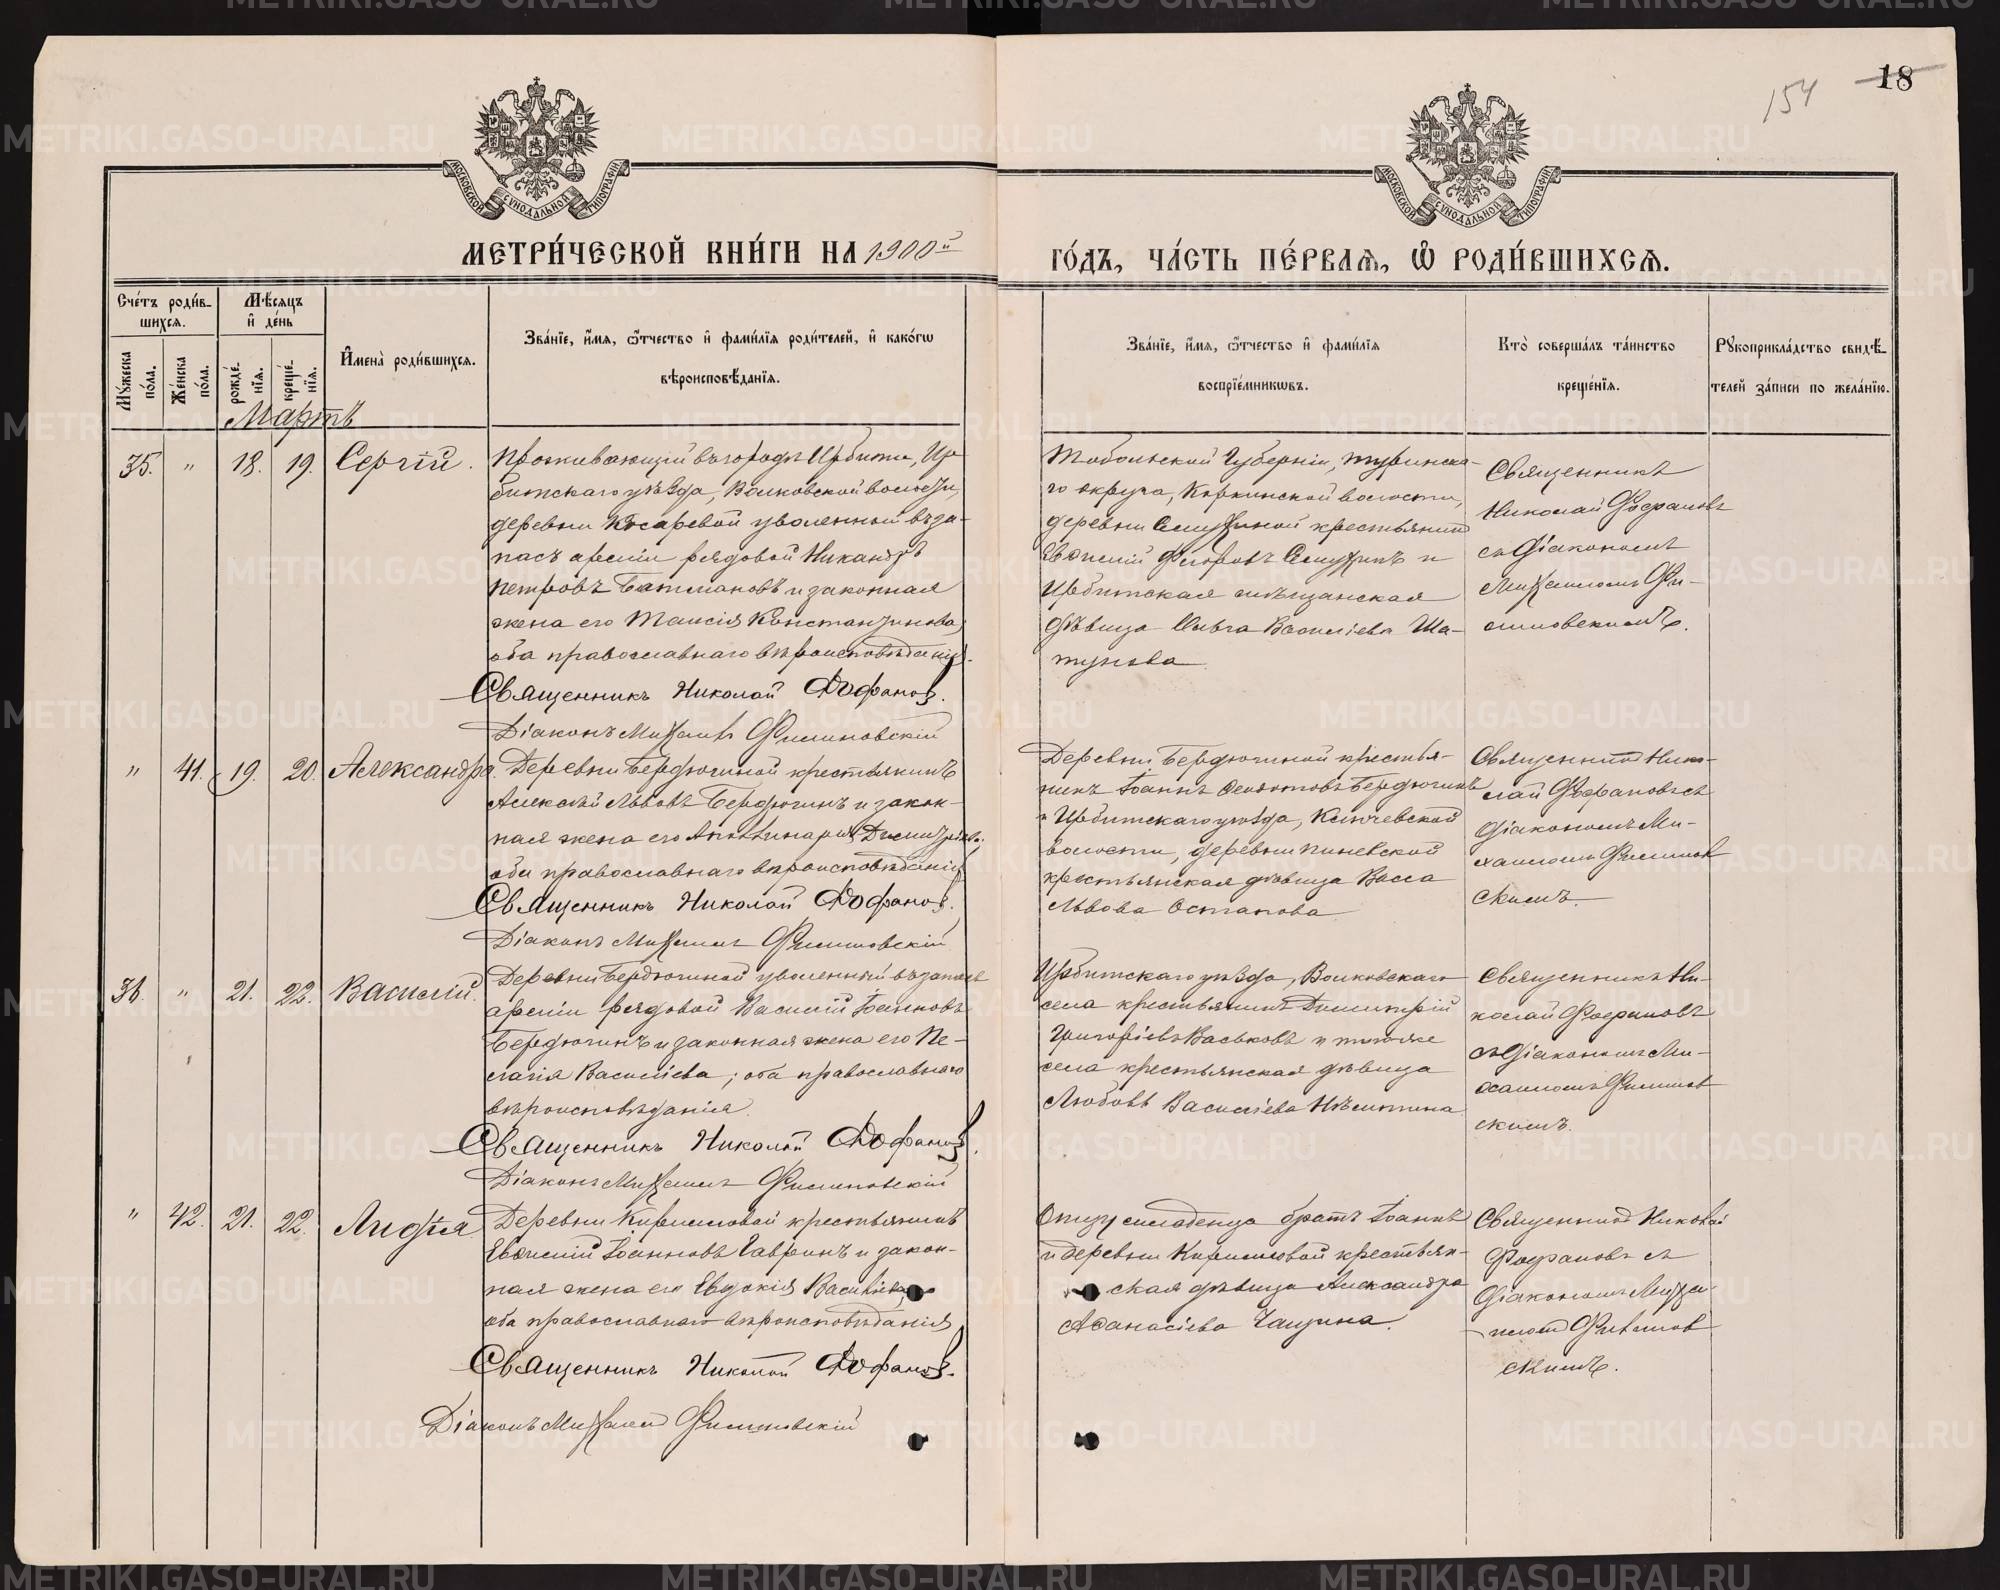 154
18
МОСКОВСКОЙ СѴНОДАЛЬНОЙ ТИПОГРАФІИ
МОСКОВСКОЙ СѴНОДАЛЬНОЙ ТИПОГРАФІИ
МЕТРИ́ЧЕСКОЙ КНИ́ГИ НА 1900й
ГО́ДЪ, ЧА́СТЬ ПЕ́РВАѦ, Ѡ҆ РОДИ́ВШИХСѦ.
Сче́тъ роди́в-
шихсѧ.
Мꙋ́жеска по́ла.
Же́нска по́ла.
Мѣ́сѧцъ
и҆ де́нь
рожде́-
нїѧ.
креще́-
нїѧ.
И҆мена̀ роди́вшихсѧ.
Зва́нїе, и҆́мѧ, ѻ҆́тчество и҆ фами́лїѧ роди́телей, и҆ како́гѡ
вѣроисповѣ́данїѧ.
Зва́нїе, и҆́мѧ, ѻ҆́тчество и҆ фами́лїѧ
воспрїе́мникѡвъ.
Кто̀ соверша́лъ та́инство
креще́нїѧ.
Рꙋкоприкла́дство свидѣ́-
телей за́писи по жела́нїю.
Мартъ
35. " 18. 19. Сергій.
Проживающій въ городѣ Ирбити, Ир-
битскаго уѣзда, Волковской волости,
деревни Косаревой уволенный въ за-
пасъ арміи рядовой Никандръ
Петровъ Батмановъ и законная
жена его Таисія Константинова,
оба православнаго вѣроисповѣданія.
Священникъ Николай Фофановъ.
Діаконъ Михаилъ Филиповскій
Тобольской Губерніи, Туринска-
го округа, Коркинской волости,
деревни крестьянинъ
Евѳимій Ѳедоровъ и
Ирбитская мѣщанская
дѣвица Ольга Васильева Ша-
тунова
Священникъ
Николай Фофановъ
съ Діакономъ
Михаиломъ Фи-
липовскимъ.
" 41. 19. 20. Александра.
Деревни Бердюгиной крестьянинъ
Алексѣй Львовъ Бердюгинъ и закон-
ная жена его Аполлинарія Димитріева
оба православнаго вѣроисповѣданія
Священникъ Николай Фофановъ.
Діаконъ Михаилъ Филиповскій
Деревни Бердюгиной крестья-
нинъ Іоаннъ Бердюгинъ
и Ирбитскаго уѣзда, Ключевской
волости, деревни Пиневской
крестьянская дѣвица Васса
Львова Остапова
Священникъ Нико-
лай Фофановъ съ
Діакономъ Ми-
хаиломъ Филипов
скимъ.
36. " 21. 22. Василій.
Деревни Бердюгиной уволенный въ запасъ
арміи рядовой Василій Іоанновъ
Бердюгинъ и законная жена его Пе-
лагія Васильева; оба православнаго
вѣроисповѣданія.
Священникъ Николай Фофановъ.
Діаконъ Михаилъ Филиповскій
Ирбитскаго уѣзда, Волковскаго
села крестьянинъ Димитрій
Григорьевъ Васьковъ и тогоже
села крестьянская дѣвица
Любовь Васильева
Священникъ Ни-
колай Фофановъ
съ Діакономъ Ми-
хаиломъ Филипов
скимъ.
" 42. 21. 22. Лидія.
Деревни Кирилловой крестьянинъ
Евѳимій Іоанновъ Гавринъ и закон-
ная жена его Евдокія Васильева,
оба православнаго вѣроисповѣданія
Священникъ Николай Фофановъ.
Діаконъ Михаилъ Филиповскій
Отцу младенца братъ Іоаннъ
и деревни Кирилловой крестьян-
ская дѣвица Александра
Аѳанасіева Чащина.
Священникъ Николай
Фофановъ съ
Діакономъ Михаи-
ломъ Филипов
скимъ.
METRIKI.GASO-URAL.RU